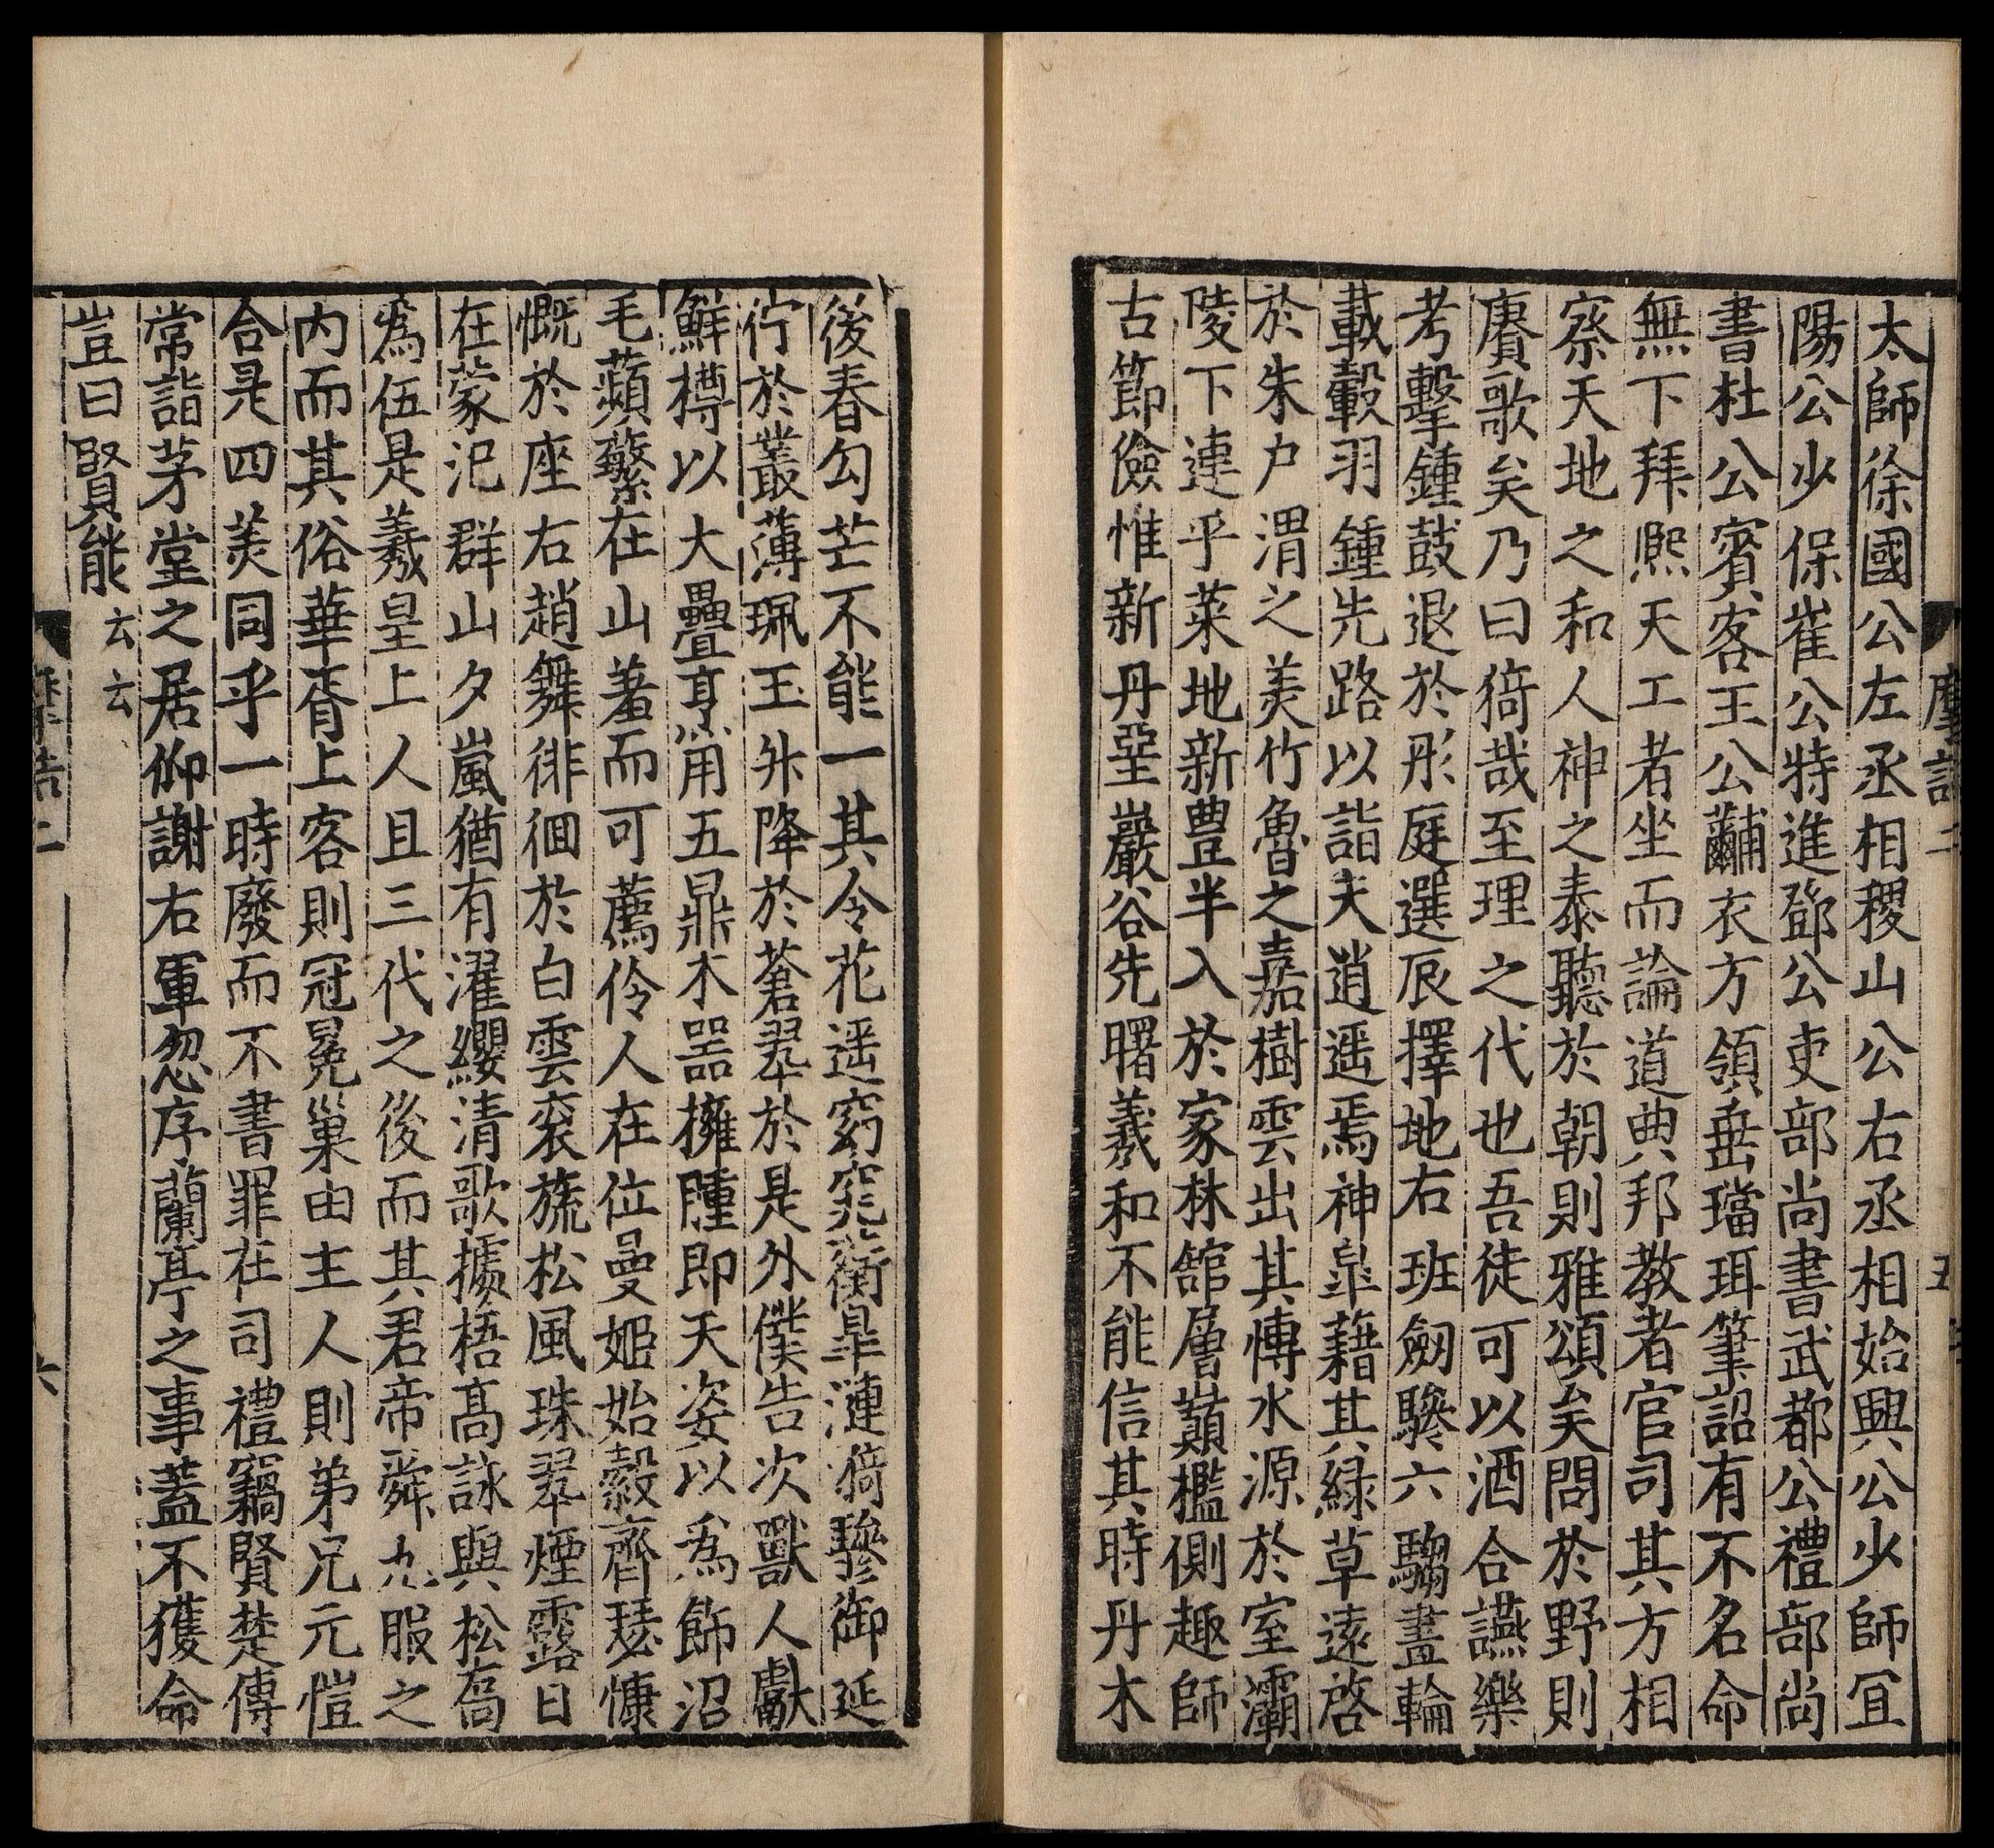 太師徐國公左丞相稷山公右丞相始興公少師宜
陽公少保崔公特進鄧公吏部尚書武都公禮部尚
書杜公賓客王公黼衣方領垂璫珥筆詔有不名命
無下拜熈天工者坐而論道典邦教者官司其方相
察天地之和人神之泰聽於朝則雅頌矣問於野則
賡歌矣乃曰猗哉至理之代也吾徒可以酒合讌樂
考擊鍾鼓退於彤庭選辰擇地右班劒驂六騶畫輪
載轂羽鍾先路以詣夫逍遥焉神皐藉其綠草遠啓
於朱户渭之美竹魯之嘉樹雲出其愽水源於室灞
陵下連乎菜地新豊半入於家林舘層巔檻側趣師
古節儉惟新丹堊巖谷先曙羲和不能信其時丹木
後春勾芒不能一其令花遥窈窕蘅皐漣漪驂御延
佇於叢薄珮玉升降於蒼翠於是外僕告次獸人獻
鮮樽以大罍烹用五鼎木器擁腫即天姿以為飾沼
毛蘋蘩在山羞而可薦伶人在位曼姬始縠齊瑟慷
慨於座右趙舞徘徊於白雲衮旒松風珠翠煙露日
在蒙汜群山夕嵐猶有濯纓清歌據梧高詠與松喬
為伍是羲皇上人且三代之後而其君帝舜九服之
内而其俗華胥上客則冠冕巢由主人則弟兄元愷
合是四美同乎一時廢而不書罪在司禮竊賢楚傳
常詣茅堂之居仰謝右軍忽序蘭亭之事蓋不獲命
豈曰賢能云云